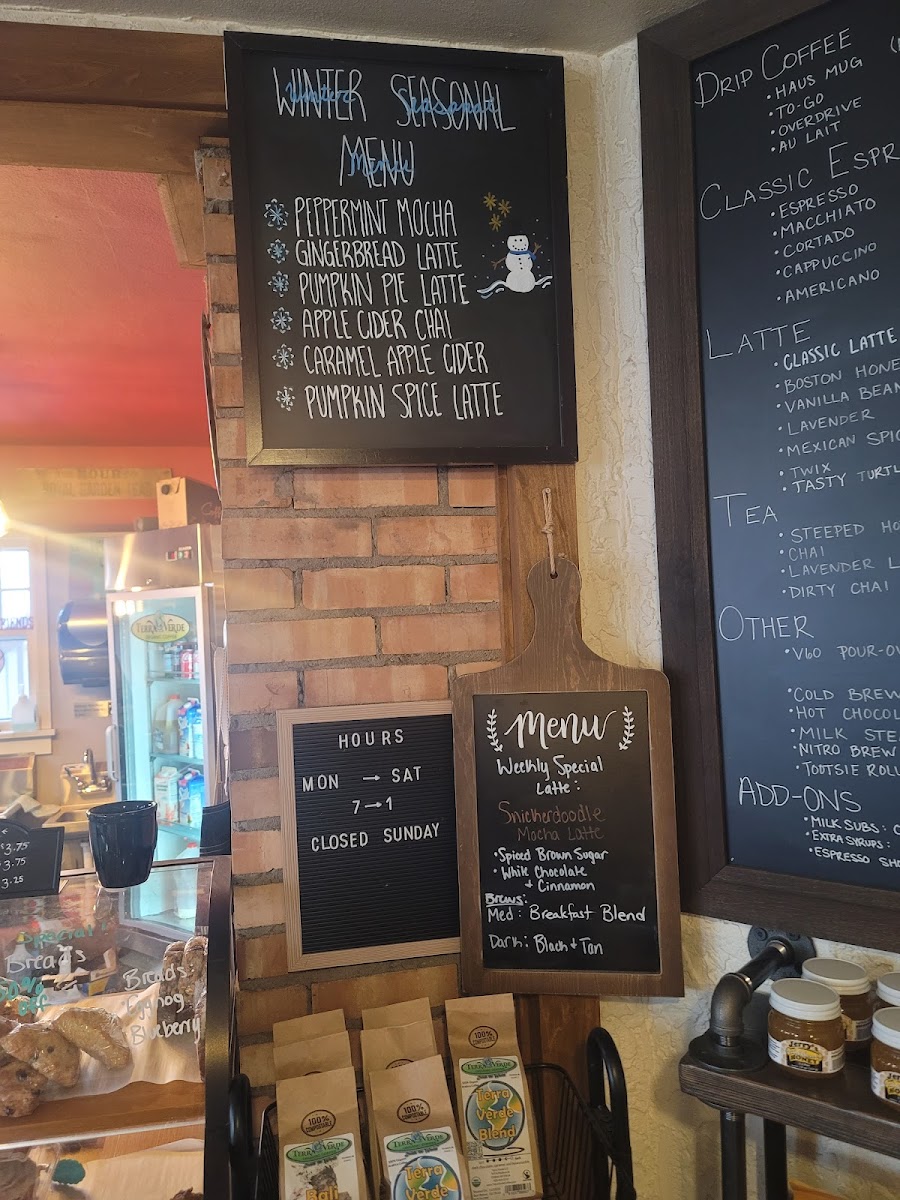 WINTER SEASONAL
MENU
Winter Seasonal
Menu
PEPPERMINT MOCHA
GINGERBREAD LATTE
PUMPKIN PIE LATTE
APPLE CIDER CHAI
CARAMEL APPLE CIDER
PUMPKIN SPICE LATTE
DRIP COFFEE
• HAUS MUG
• TO-GO
• OVERDRIVE
• AU LAIT
CLASSIC ESPR
• ESPRESSO
• MACCHIATO
• CORTADO
• CAPPUCCINO
• AMERICANO
LATTE
• CLASSIC LATTE
• BOSTON HONE
• VANILLA BEAN
• LAVENDER
• MEXICAN SPIC
• TWIX
• TASTY TURTL
TEA
• STEEPED HO
• CHAI
• LAVENDER L
• DIRTY CHAI
OTHER
• V60 POUR-OV
• COLD BREW
• HOT CHOCOL
• MILK STE
• NITRO BREW
• TOOTSIE ROLL
ADD-ONS
• MILK SUBS:
• EXTRA SYRUPS:
• ESPRESSO SHO
HOURS
MON → SAT
7→1
CLOSED SUNDAY
Menu
Weekly Special
Latte:
Snickerdoodle
Mocha Latte
• Spiced Brown Sugar
• White Chocolate
+ Cinnamon
Brews:
Med: Breakfast Blend
Dark: Black + Tan
HOUR
TERRA VERDE
$3.75
3.75
3.25
Special
Breads
Breads
Eggnog
Blueberry
100%
COMPOSTABLE
TERRA VERDE
Bali
100%
COMPOSTABLE
TERRA VERDE
Terra
Verde
100%
COMPOSTABLE
TERRA VERDE
Terra
Verde
Blend
Jerry's
HONEY